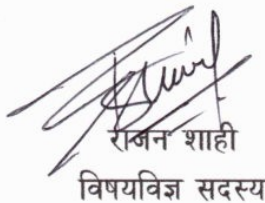 राजन शाही
विषयविज्ञ सदस्य